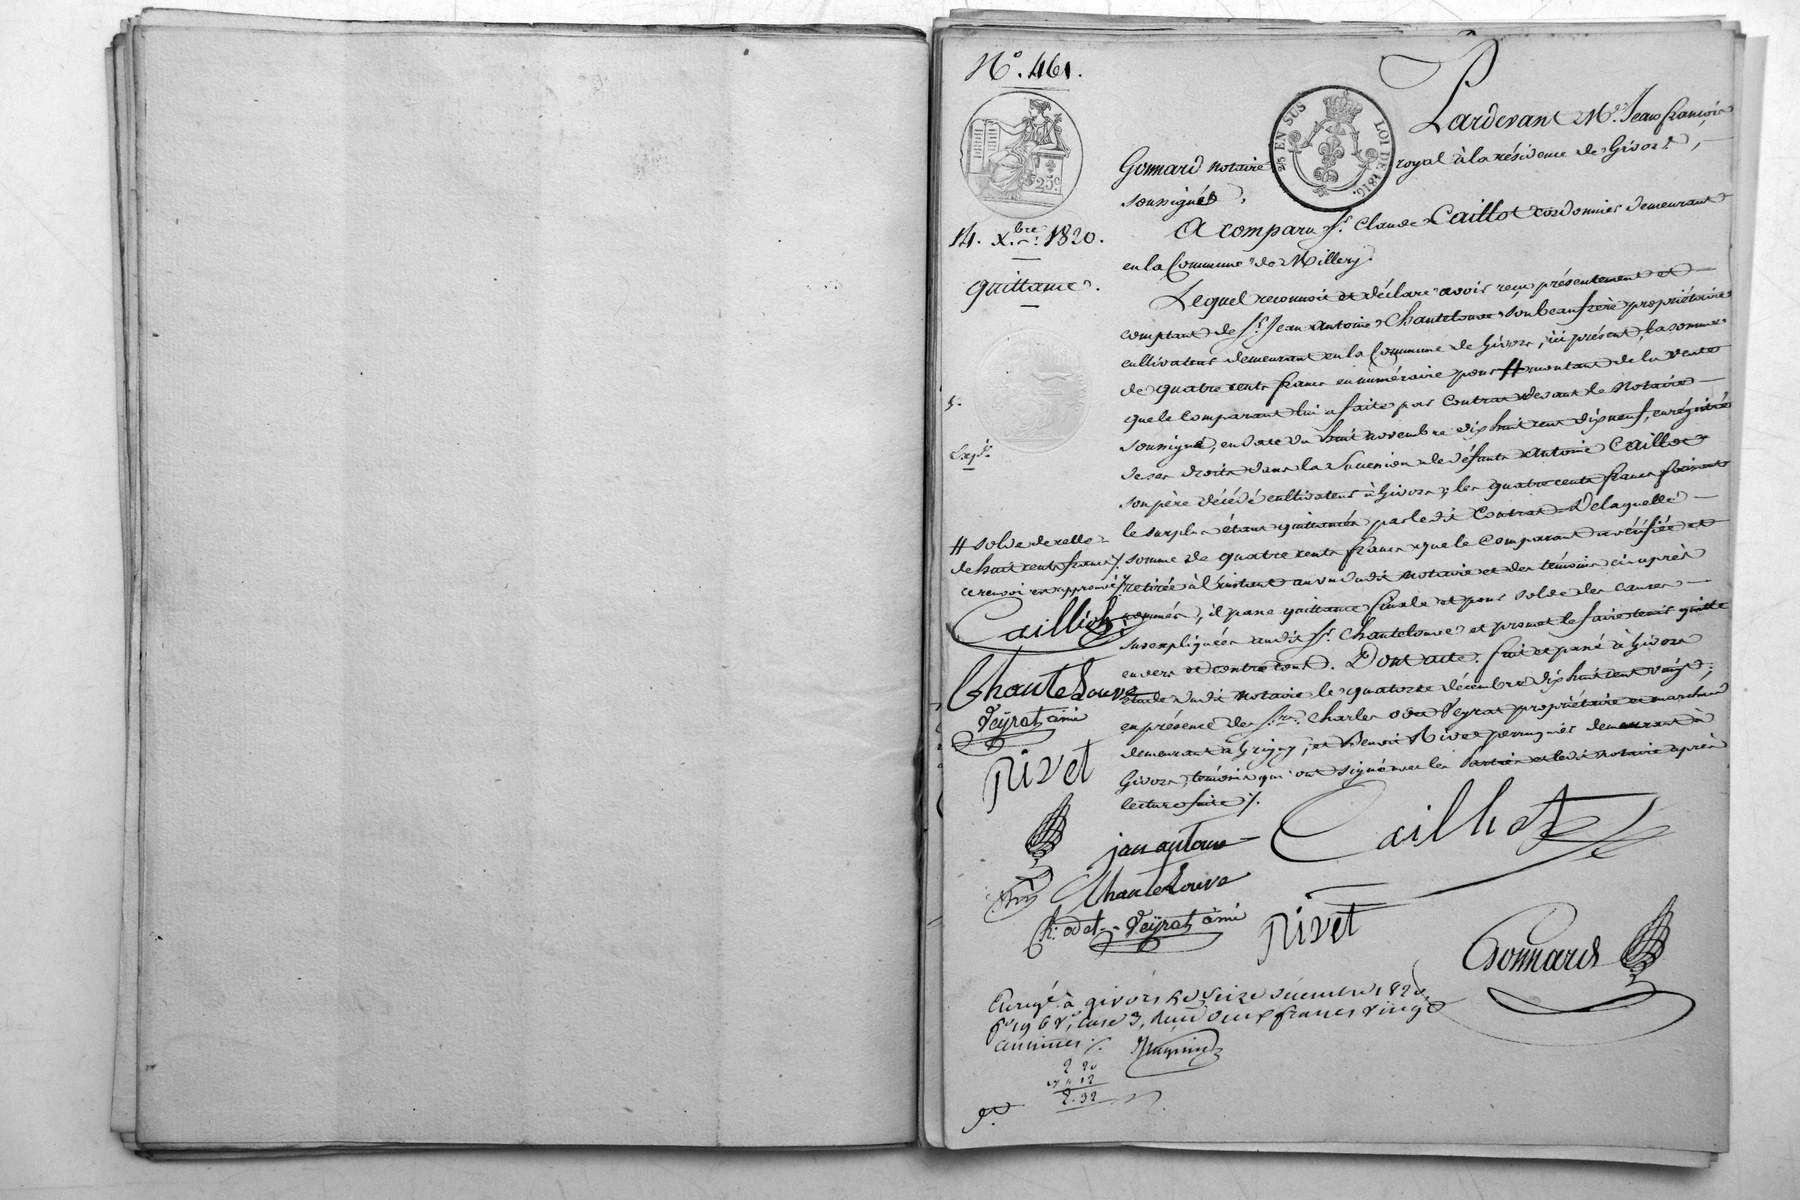 N.º 461.
25 EN SUS LOI DE 1816.
25c
14. X.bre 1820.
quittance.
Pardevant M.e Jean françois
Gonnard notaire royal à la résidence de Givors,
soussigné,
A comparu S.r Claude Caillot cordonnier demeurant
en la Commune de Millery.
Lequel reconnoit et déclare avoir reçu présentement et
comptant de S.r Jean Antoine Chantelouve son beaufrère propriétaire
cultivateur demeurant en la Commune de Givors, ici présent, la somme
de quatre cents francs en numéraire pour # montant de la vente
que le comparant lui a faite par Contrat devant le Notaire
soussigné, en date du huit novembre dix huit cent dix neuf, enrégistré
de ses droits dans la Succession de défunt Antoine Caillot
son père décédé cultivateur à Givors; les quatre cents francs faisant
le surplus étant quittancés par ledit Contrat. De laquelle
somme de quatre cents francs que le Comparant a vérifiée et
retirée à l'instant au vu dudit Notaire et des témoins ci après
nommés, il passe quittance finale et pour solde des causes
susexpliquées audit S.r Chantelouve et promet le faire tenir quitte
envers et contre tous. Dont acte. fait et passé à Givors
étude dudit Notaire le quatorze décembre dix huit cent vingt,
en présence des S.rs Charles odet Veyrat propriétaire et marchand
demeurant à Grigny, et Benoit Rivet perruquier demeurant à
Givors, témoins qui ont signé avec les parties et ledit notaire après
lecture faite ./.
# solde de celle
de huit cents francs ./.
ce renvoi est approuvé ./.
Cailliot
Chantelouve
Veÿrat ainé
Rivet
jean antoine
Chantelouve
Cailliot
Ch. odet Veÿrat ainé
Rivet
Gonnard
Enregé à givors le Seize décembre 1820,
fo 19 6 vo, case 3, Reçu deux francs vingt
centimes ./.
2 20
22